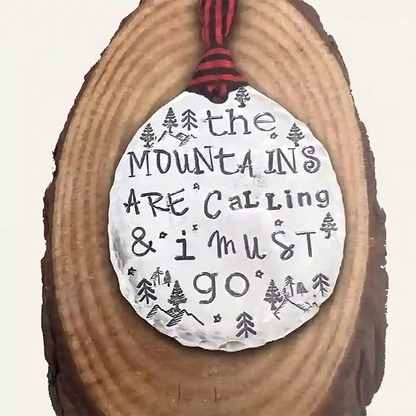 the
MOUNtAINS
ARE CaLLing
& i mUST
go